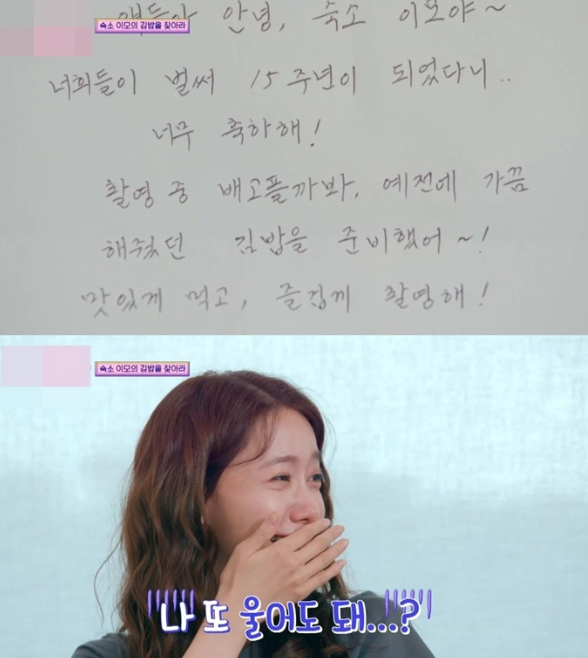 숙소 이모의 김밥을 찾아라
얘들아 안녕, 숙소 이모야~
너희들이 벌써 15주년이 되었다니..
너무 축하해!
촬영 중 배고플까봐, 예전에 가끔
해줬던 김밥을 준비했어~!
맛있게 먹고, 즐겁게 촬영해!
숙소 이모의 김밥을 찾아라
나 또 울어도 돼...?